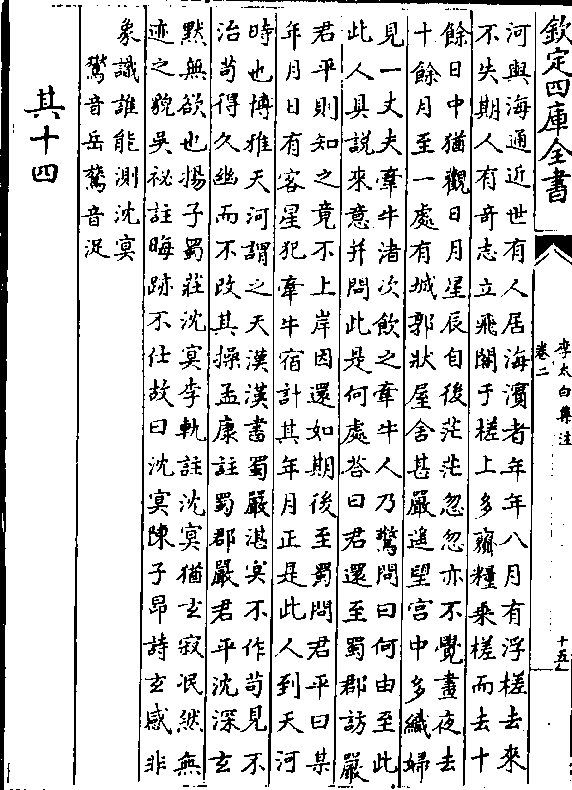 欽定四庫全書
李太白集注
卷二
十五
河與海通近世有人居海濱者年年八月有浮槎去來
不失期人有奇志立飛閣于槎上多齎糧乘槎而去十
餘日中猶觀日月星辰自後茫茫忽忽亦不覺晝夜去
十餘月至一處有城郭狀屋舍甚嚴遙望宮中多織婦
見一丈夫牽牛渚次飲之牽牛人乃驚問曰何由至此
此人具說來意并問此是何處荅曰君還至蜀郡訪嚴
君平則知之竟不上岸因還如期後至蜀問君平曰某
年月日有客星犯牽牛宿計其年月正是此人到天河
時也博雅天河謂之天漢漢書蜀嚴湛冥不作苟見不
治苟得久幽而不改其操孟康註蜀郡嚴君平沈深玄
默無欲也揚子蜀莊沈冥李軌註沈冥猶玄寂泯然無
迹之貌吳祕註晦跡不仕故曰沈冥陳子昂詩玄感非
象識誰能測沈冥
鸑音岳鷟音浞
其十四